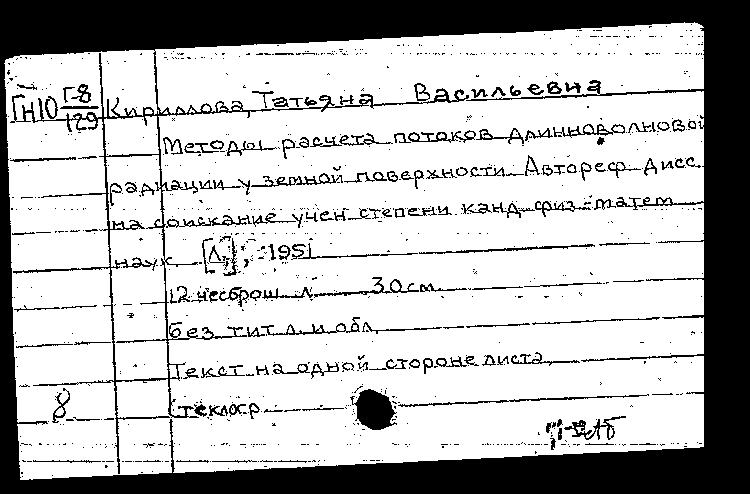 ГН10 Г-8/129 Кириллова, Татьяна Васильевна
Методы расчета потоков длинноволновой
радиации у земной поверхности. Автореф. дисс.
на соискание учен степени канд. физ-матем
наук. [Л.], 1951
12 несброш. л. 30 см.
без тит. л. и обл.
Текст на одной стороне листа.
Стеклогр.
8